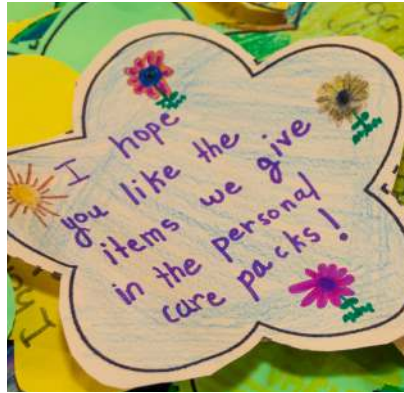 I hope
you like the
items we give
in the personal
care packs!